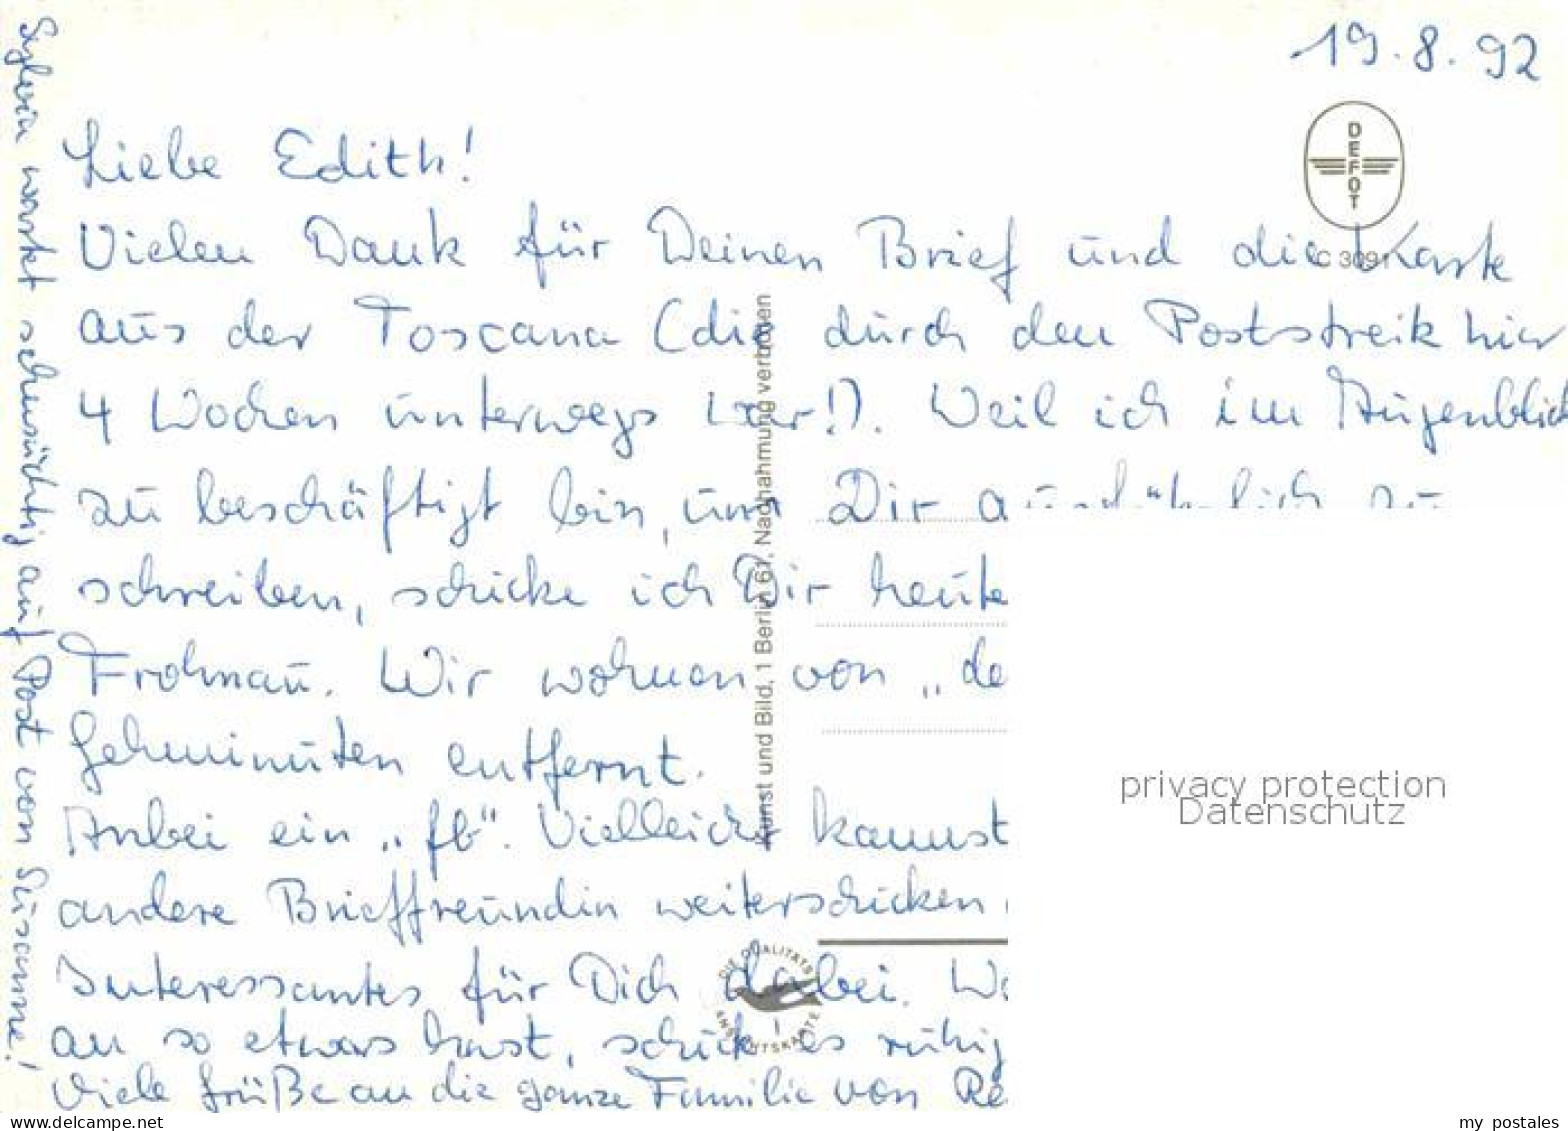 19.8.92
DEFOT
C 3091
Liebe Edith!
Vielen Dank für Deinen Brief und die Karte
aus der Toscana (die durch den Poststreik hier
4 Wochen unterwegs war!). Weil ich im Augenblick
zu beschäftigt bin, um Dir ausführlich zu
schreiben, schicke ich Dir heute
Frohnau. Wir wohnen von „de
Gehminuten entfernt.
Anbei ein „fb". Vielleicht kannst
andere Brieffreundin weiterschicken
Interessantes für Dich dabei. We
an so etwas hast, schick' es ruhig
Viele Grüße an die ganze Familie von Re
Sylvia wartet sehnsüchtig auf Post von Susanne!
Kunst und Bild, 1 Berlin 61, Nachahmung verboten
DIE QUALITÄTS
ANSICHTSKARTE
privacy protection
Datenschutz
www.delcampe.net
my_postales